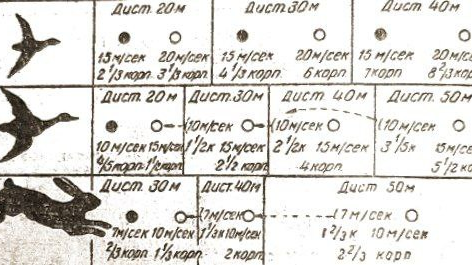 Дист. 20м Дист. 30м Дист. 40м
15 м/сек 20м/сек 15 м/сек 20м/сек 15 м/сек 20м/сек
2 1/3 корп. 3 1/3 корп. 4 1/3 корп. 6 корп. 7 корп. 8 2/3 корп.
Дист. 20м Дист. 30м Дист. 40м Дист. 50м
10 м/сек 15м/сек (10м/сек (10м/сек (10 м/сек
1 1/2к 15 м/сек 2 1/2к 15 м/сек 3 1/5к 15 м/сек
4/5 корп. 1 1/2 корп. 2 1/2 корп. 4 корп. 5 1/2 ко
Дист. 30м Дист. 40м Дист. 50м
(7м/сек (7 м/сек
7м/сек 10м/сек 1 1/3к 10м/сек 1 2/3к 10 м/сек
2/3 корп. 1 1/3 корп. 2 корп. 2 2/3 корп